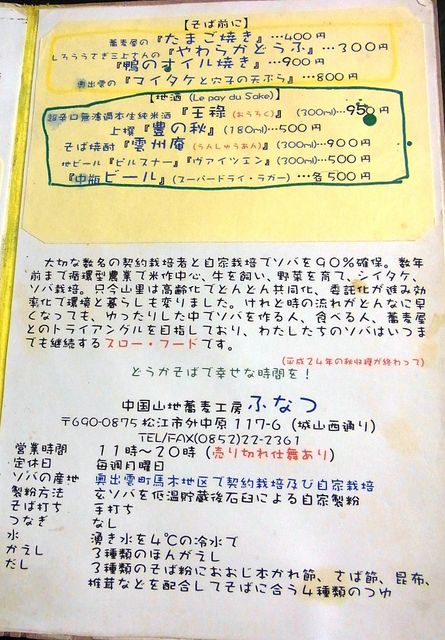 【そば前に】
蕎麦屋の『たまご焼き』…400円
しろうさぎ三上さんの『やわらかどうふ』…300円
『鴨のすイル焼き』…900円
奥出雲の『マイタケと穴子の天ぷら』…800円
【地酒 (Le pay du Sake)】
超辛口無濾過本生純米酒『王祿(おうろく)』(300ml)…950円
上撰『豊の秋』(180ml)…500円
そば焼酎『雲州庵(うんしゅうあん)』(300ml)…900円
地ビール『ピルスナー』『ヴァイツェン』(300ml)…500円
『中瓶ビール』(スーパードライ・ラガー)…各500円
大切な数名の契約栽培者と自家栽培でソバを90%確保。数年
前まで循環型農業で米作中心、牛を飼い、野菜を育て、シイタケ、
ソバ栽培。只今山里は高齢化でどんどん共同化、委託化が進み効
率化で環境と暮らしも変りました。けれど時の流れがどんなに早
くなっても、ゆったりした中でソバを作る人、食べる人、蕎麦屋
とのトライアングルを目指しており、わたしたちのソバはいつま
でも継続するスロー・フードです。
(平成24年の秋収穫が終わって)
どうかそばで幸せな時間を!
中国山地蕎麦工房 ふなつ
〒690-0875 松江市外中原 117-6 (城山西通り)
TEL/FAX(0852)22-2361
営業時間 11時~20時 (売り切れ仕舞あり)
定休日 毎週月曜日
ソバの産地 奥出雲町馬木地区で契約栽培及び自家栽培
製粉方法 玄ソバを低温貯蔵後石臼による自家製粉
そば打ち 手打ち
つなぎ なし
水 湧き水を4℃の冷水で
かえし 3種類のほんがえし
だし 3種類のそば粉におおじ本かれ節、さば節、昆布、
椎茸などを配合してそばに合う4種類のつゆ